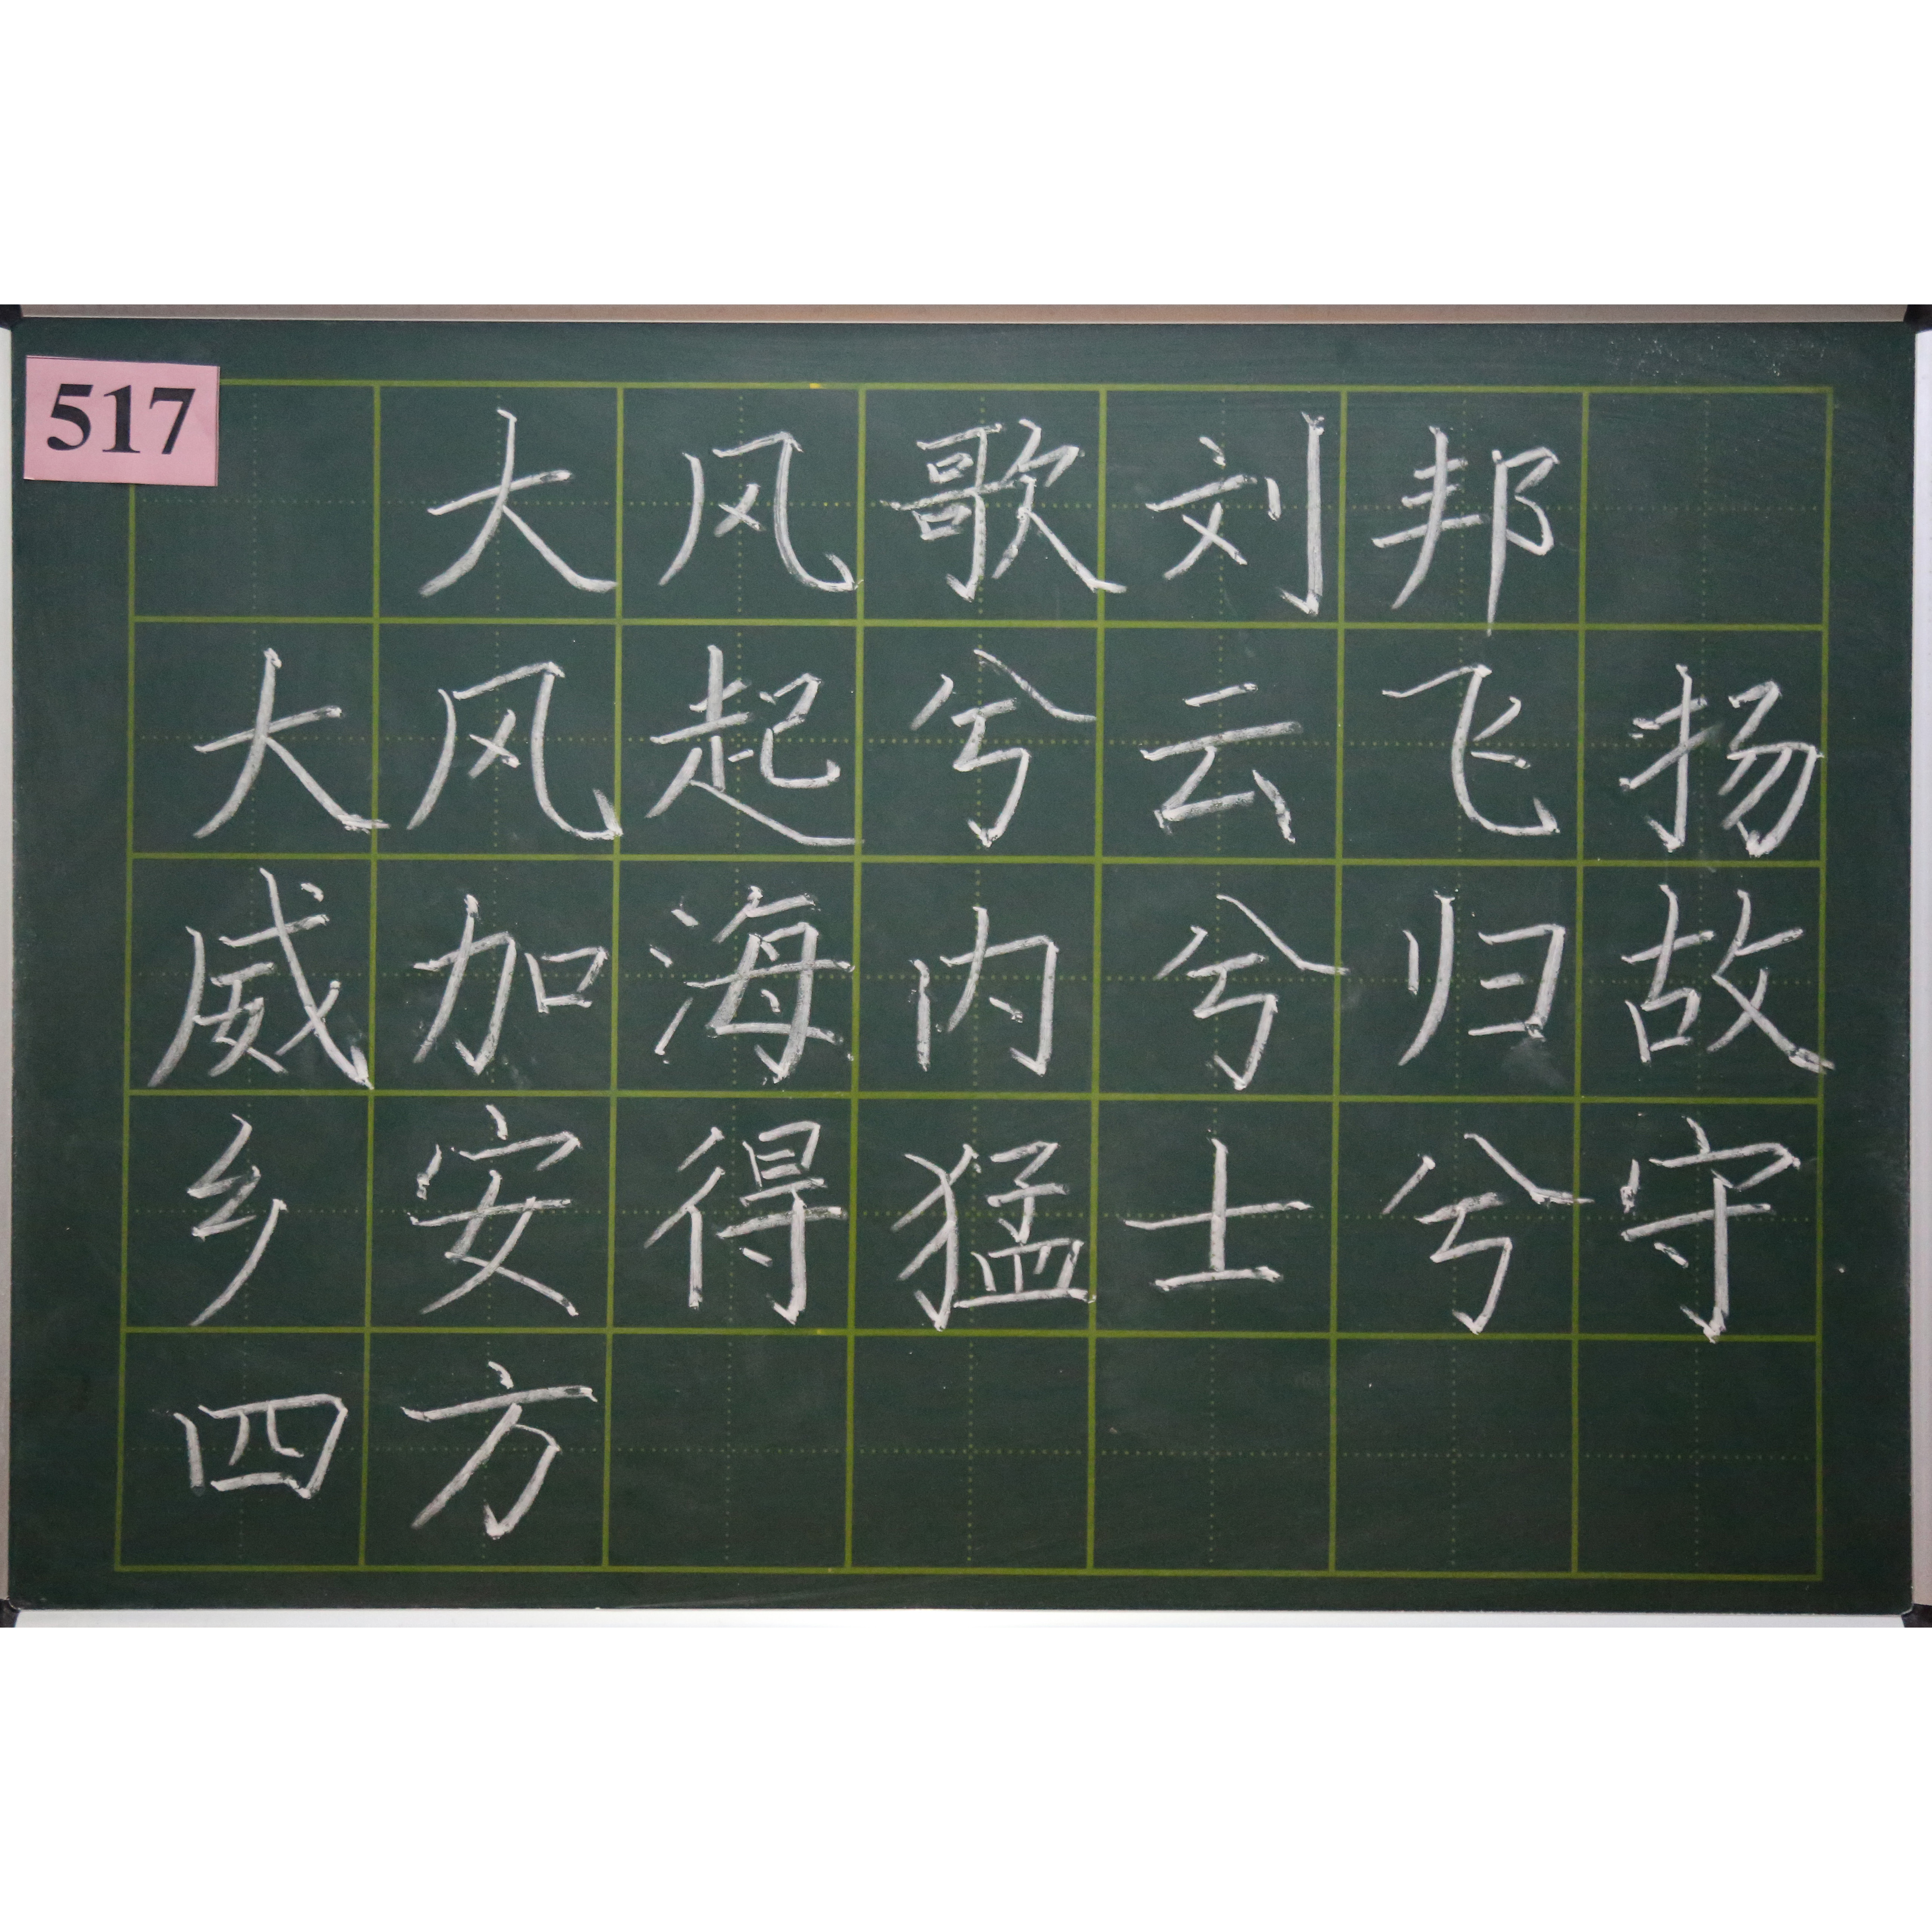 517
大风歌刘邦
大风起兮云飞扬
威加海内兮归故
乡安得猛士兮守
四方